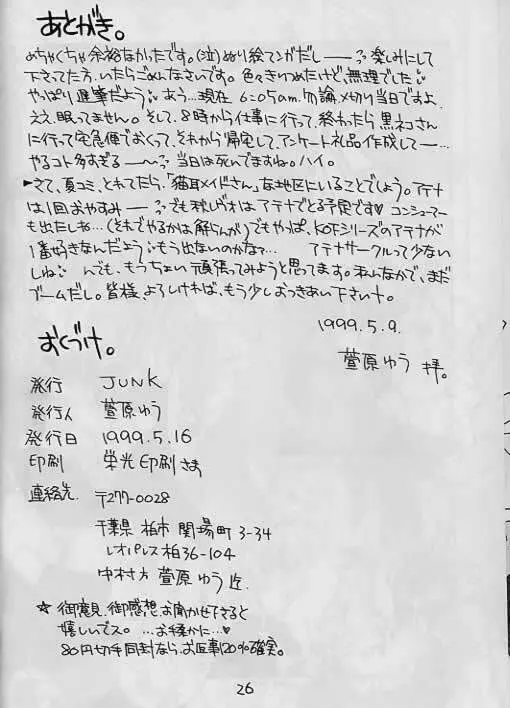 あとがき。
めちゃくちゃ余裕なかったです。(泣)ぬり絵マンガだし——?? 楽しみにして
下さってた方、いたらごめんなさいです。色々きりつめたけど、無理でした
やっぱり遅筆だよう あう…現在 6:05am. 勿論〆切り当日ですよ
ええ、眠ってません。そして、8時から仕事に行って、終わったら黒ネコさん
に行って宅急便でおくって、それから帰宅して、アンケート礼品作成して——…
やるコト多すぎる——〜?? 当日は死んでますね。ハイ。
►さて、夏コミ、とれてたら、「猫耳メイドさん」な地区にいることでしょう。アテナ
は1回おやすみ——?? でも秋レヴォはアテナでとる予定です♥ コンシューマー
も出たしね…(それでやるかは解らんが)でもやっぱ、KOFシリーズのアテナが
1番好きなんだよう もう出ないのかなァ… アテナサークルって少ない
しね んでも、もうちょい頑張ってみようと思ってます。私いなかで、まだ
ブームだし。皆様、よろしければ、もう少しおつきあい下さいナ。
1999.5.9.
萱原ゆう 拝。
おくづけ。
発行 JUNK
発行人 萱原ゆう
発行日 1999.5.16
印刷 栄光印刷さま
連絡先 〒277-0028
千葉県 柏市 関場町 3-34
レオパレス柏36-104
中村方 萱原ゆう迄.
☆ 御意見、御感想、お聞かせ下さると
嬉しいでス。…お手軽に…♥
80円切手同封なら、お返事120%確実。
26